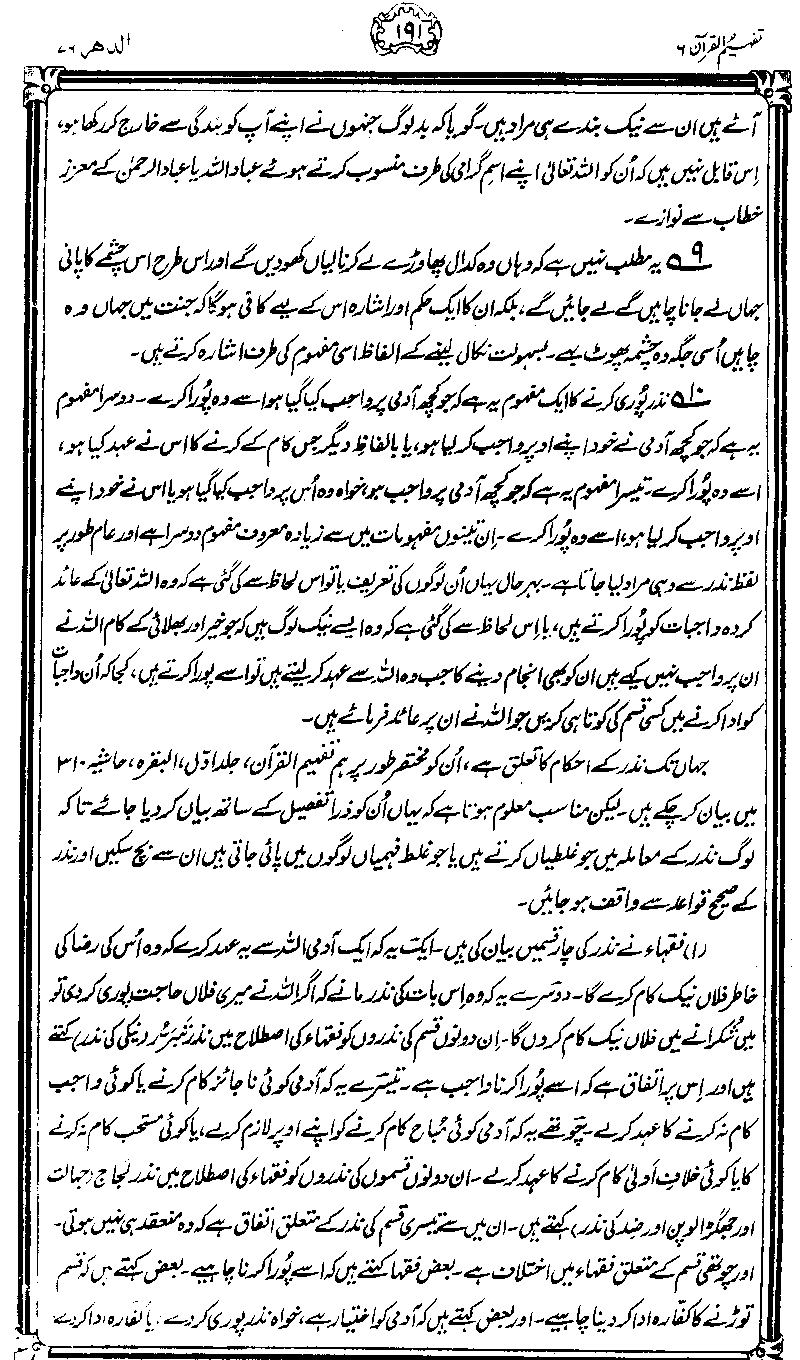 تفہیم القرآن ۶
۱۹۱
الدھر ۷۶
آئے ہیں ان سے نیک بندے ہی مراد ہیں۔ گویا کہ بد لوگ جنہوں نے اپنے آپ کو بندگی سے خارج کر رکھا ہو،
اِس قابل نہیں ہیں کہ اُن کو اللہ تعالیٰ اپنے اسمِ گرامی کی طرف منسوب کرتے ہوئے عباداللہ یا عباد الرحمٰن کے معزز
خطاب سے نوازے۔
۹ یہ مطلب نہیں ہے کہ وہاں وہ کدال پھاوڑے لے کر نالیاں کھودیں گے اور اس طرح اس چشمے کا پانی
جہاں لے جانا چاہیں گے لے جائیں گے، بلکہ ان کا ایک حکم اور اشارہ اس کے لیے کافی ہوگا کہ جنت میں جہاں وہ
چاہیں اُسی جگہ وہ چشمہ پھوٹ بہے۔ بسہولت نکال لینے کے الفاظ اسی مفہوم کی طرف اشارہ کرتے ہیں۔
۱۰ نذر پُوری کرنے کا ایک مفہوم یہ ہے کہ جو کچھ آدمی پر واجب کیا گیا ہو اسے وہ پُورا کرے۔ دوسرا مفہوم
یہ ہے کہ جو کچھ آدمی نے خود اپنے اوپر واجب کر لیا ہو، یا بالفاظِ دیگر جس کام کے کرنے کا اس نے عہد کیا ہو،
اسے وہ پُورا کرے۔ تیسرا مفہوم یہ ہے کہ جو کچھ آدمی پر واجب ہو، خواہ وہ اُس پر واجب کیا گیا ہو یا اس نے خود اپنے
اوپر واجب کر لیا ہو، اسے وہ پُورا کرے۔ اِن تینوں مفہومات میں سے زیادہ معروف مفہوم دوسرا ہے اور عام طور پر
لفظ نذر سے وہی مراد لیا جاتا ہے۔ بہرحال یہاں اُن لوگوں کی تعریف یا تو اس لحاظ سے کی گئی ہے کہ وہ اللہ تعالیٰ کے عائد
کردہ واجبات کو پُورا کرتے ہیں، یا اِس لحاظ سے کی گئی ہے کہ وہ ایسے نیک لوگ ہیں کہ جو خیر اور بھلائی کے کام اللہ نے
ان پر واجب نہیں کیے ہیں ان کو بھی انجام دینے کا جب وہ اللہ سے عہد کر لیتے ہیں تو اسے پورا کرتے ہیں، کجا کہ اُن واجبات
کو ادا کرنے میں کسی قسم کی کوتاہی کریں جو اللہ نے ان پر عائد فرمائے ہیں۔
جہاں تک نذر کے احکام کا تعلق ہے، اُن کو مختصر طور پر ہم تفہیم القرآن، جلد اوّل، البقرہ، حاشیہ ۳۱۰
میں بیان کر چکے ہیں۔ لیکن مناسب معلوم ہوتا ہے کہ یہاں اُن کو ذرا تفصیل کے ساتھ بیان کر دیا جائے تاکہ
لوگ نذر کے معاملہ میں جو غلطیاں کرتے ہیں یا جو غلط فہمیاں لوگوں میں پائی جاتی ہیں ان سے بچ سکیں اور نذر
کے صحیح قواعد سے واقف ہو جائیں۔
(۱) فقہاء نے نذر کی چار قسمیں بیان کی ہیں۔ ایک یہ کہ ایک آدمی اللہ سے یہ عہد کرے کہ وہ اُس کی رضا کی
خاطر فلاں نیک کام کرے گا۔ دوسرے یہ کہ وہ اِس بات کی نذر مانے کہ اگر اللہ نے میری فلاں حاجت پوری کر دی تو
میں شکرانے میں فلاں نیک کام کروں گا۔ اِن دونوں قسم کی نذروں کو فقہاء کی اصطلاح میں نذرِ تبرُّر (نیکی کی نذر) کہتے
ہیں اور اِس پر اتفاق ہے کہ اسے پُورا کرنا واجب ہے۔ تیسرے یہ کہ آدمی کوئی ناجائز کام کرنے یا کوئی واجب
کام نہ کرنے کا عہد کر لے۔ چوتھے یہ کہ آدمی کوئی مُباح کام کرنے کو اپنے اوپر لازم کر لے، یا کوئی مستحب کام نہ کرنے
کا یا کوئی خلافِ اَولیٰ کام کرنے کا عہد کر لے۔ ان دونوں قسموں کی نذروں کو فقہاء کی اصطلاح میں نذرِ لَجاج (جہالت
اور جھگڑالوپن اور ضد کی نذر) کہتے ہیں۔ ان میں سے تیسری قسم کی نذر کے متعلق اتفاق ہے کہ وہ منعقد ہی نہیں ہوتی۔
اور چوتھی قسم کے متعلق فقہاء میں اختلاف ہے۔ بعض فقہا کہتے ہیں کہ اسے پُورا کرنا چاہیے۔ بعض کہتے ہیں کہ قسم
توڑنے کا کفّارہ ادا کر دینا چاہیے۔ اور بعض کہتے ہیں کہ آدمی کو اختیار ہے، خواہ نذر پوری کر دے، یا کفارہ ادا کر دے۔